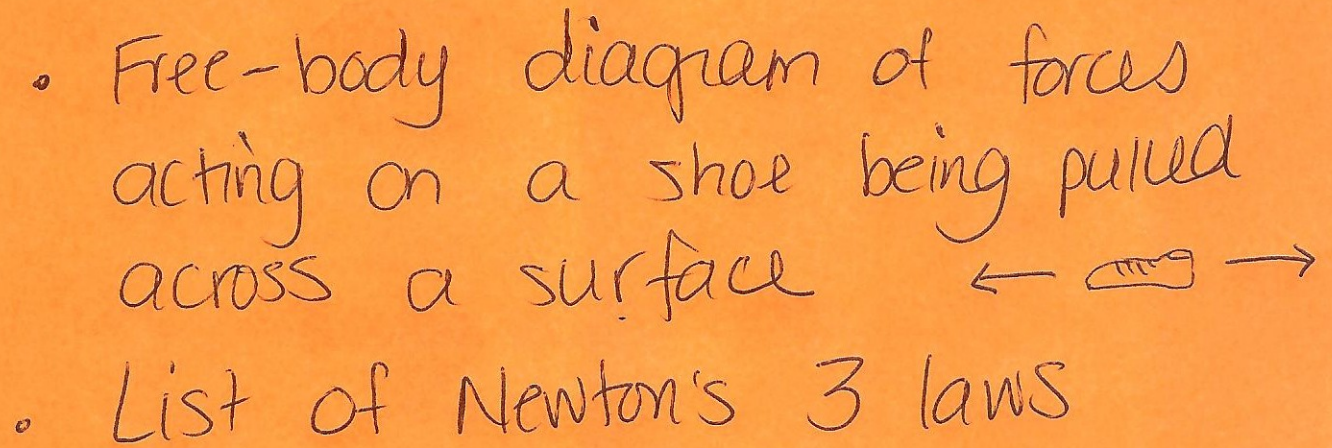 • Free-body diagram of forces
acting on a shoe being pulled
across a surface
• List of Newton's 3 laws